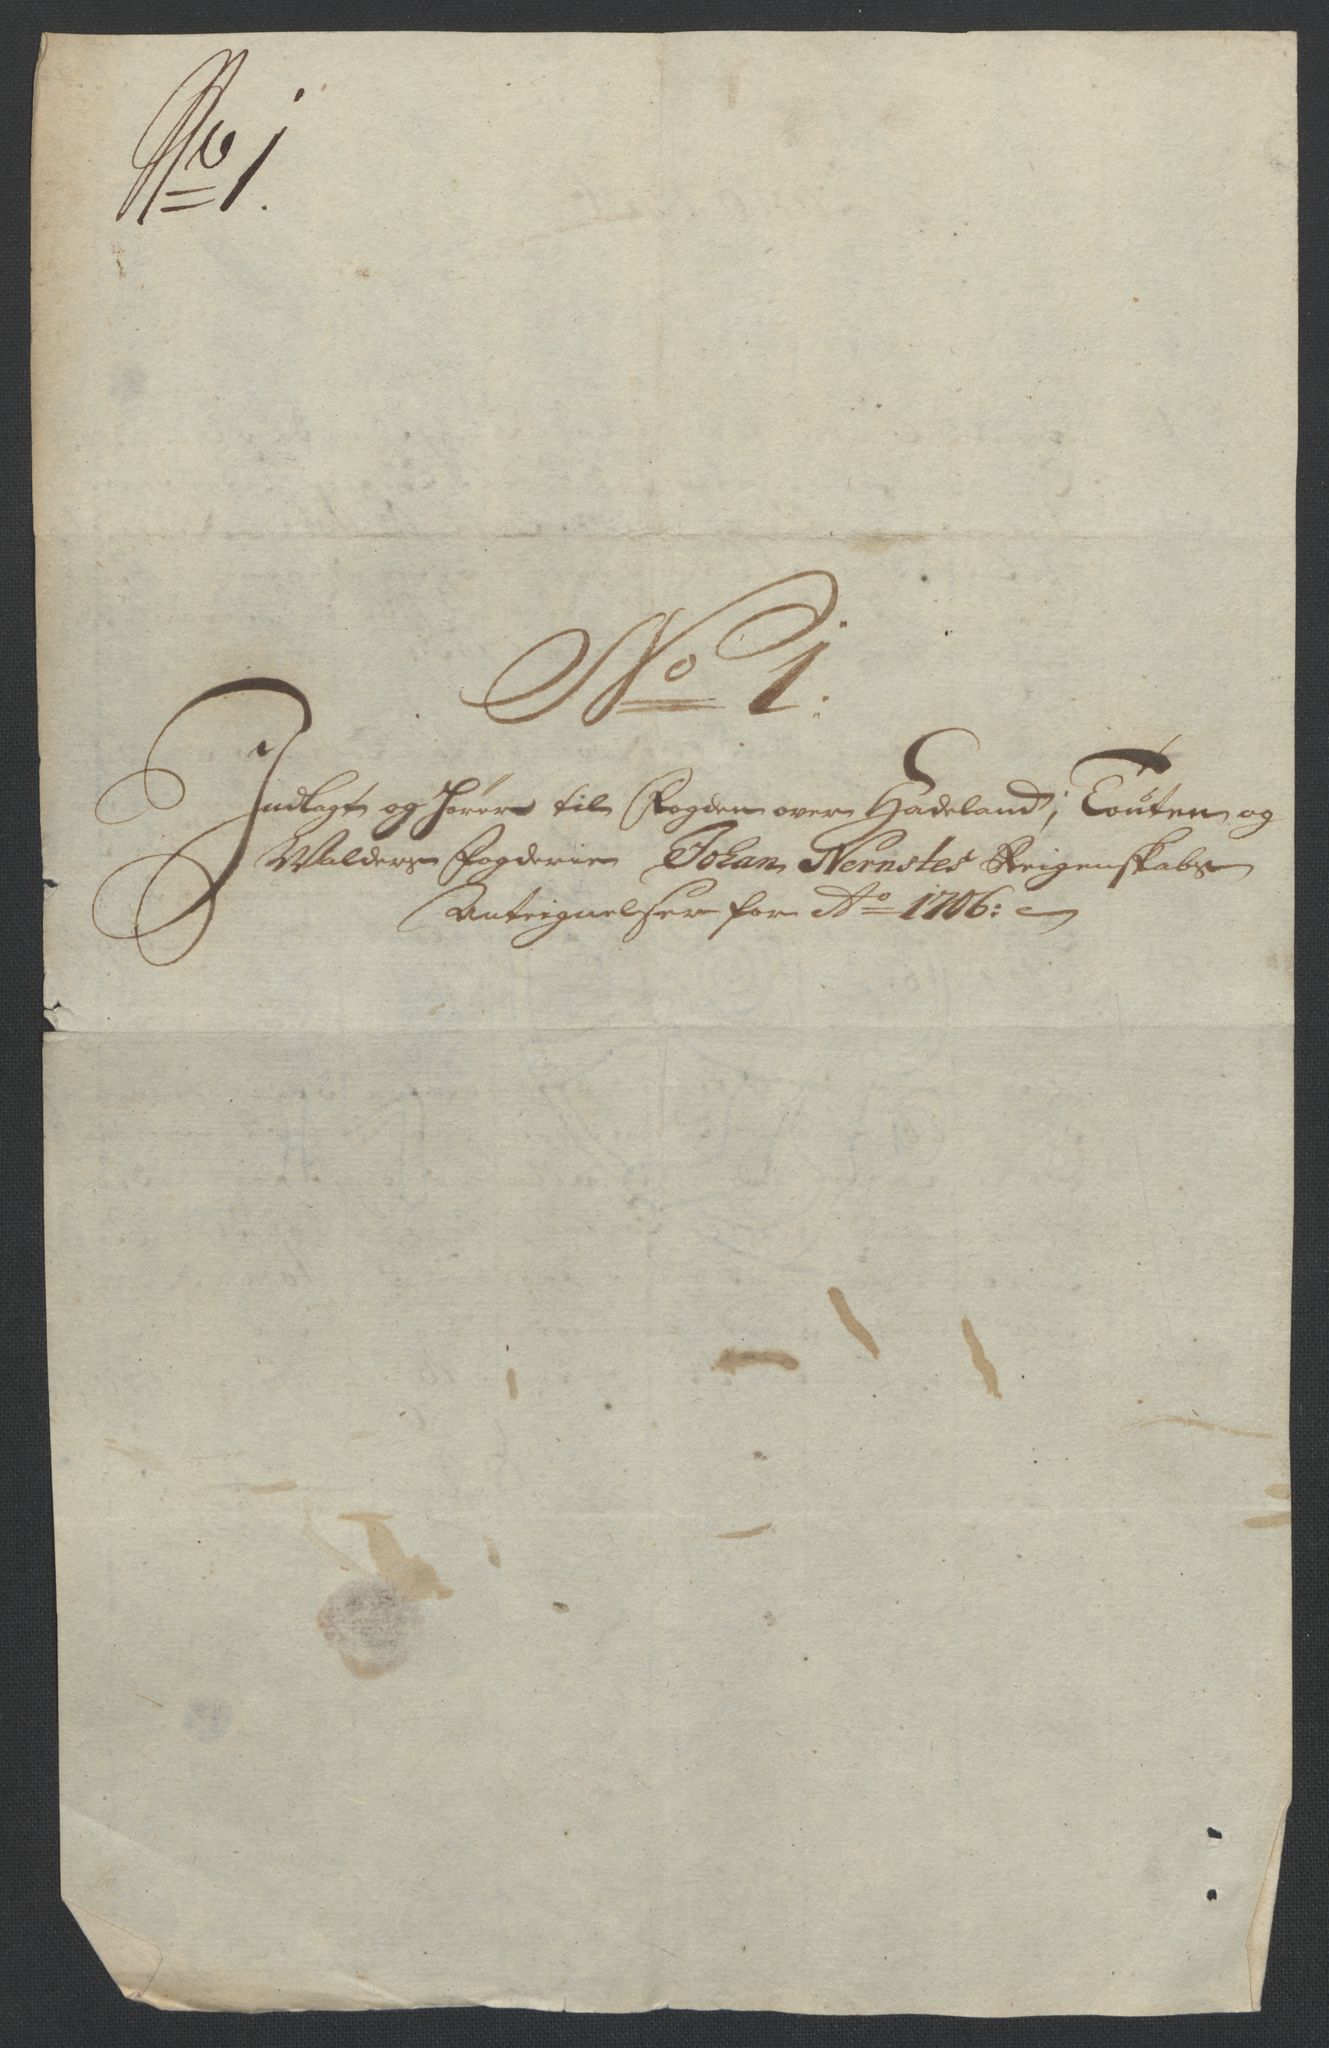 No 1.
No 1:
Indlagt og hører til Fogden over Hadeland, Touten og
Walders Fogderie Johan Nernstes Reigenskabs
Anteignelser for Ao 1706: